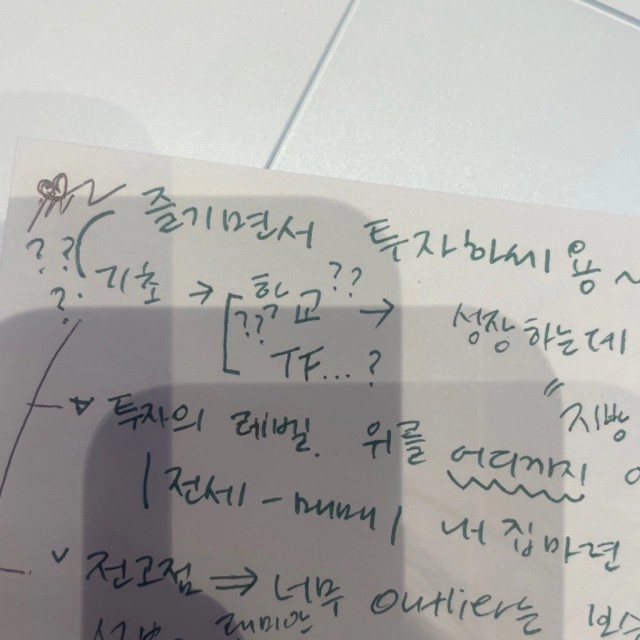 즐기면서 투자하세용~
??( 기초 → [ 한 ??
? ?? 교 → 성장하는데
TF...?
∀ 투자의 레벨. 위를 어디까지
" 지방
| 전세 - 매매 | 내 집 마련
v 전고점 ⇒ 너무 outlier는